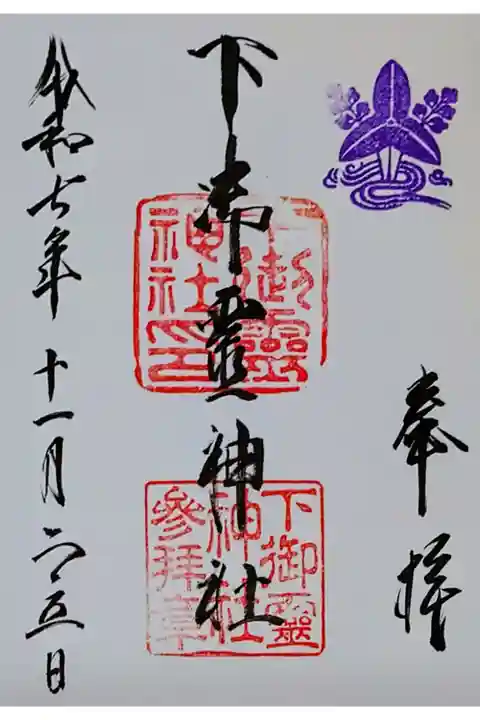 奉拝
下御霊神社
下御靈
神社印
下御靈
神社
参拝章
令和七年十一月二五日